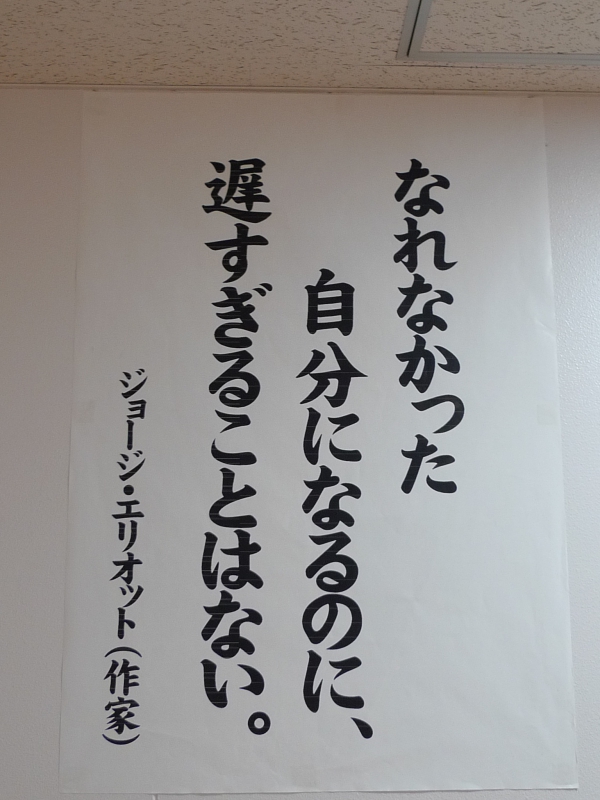 なれなかった
自分になるのに、
遅すぎることはない。
ジョージ・エリオット(作家)